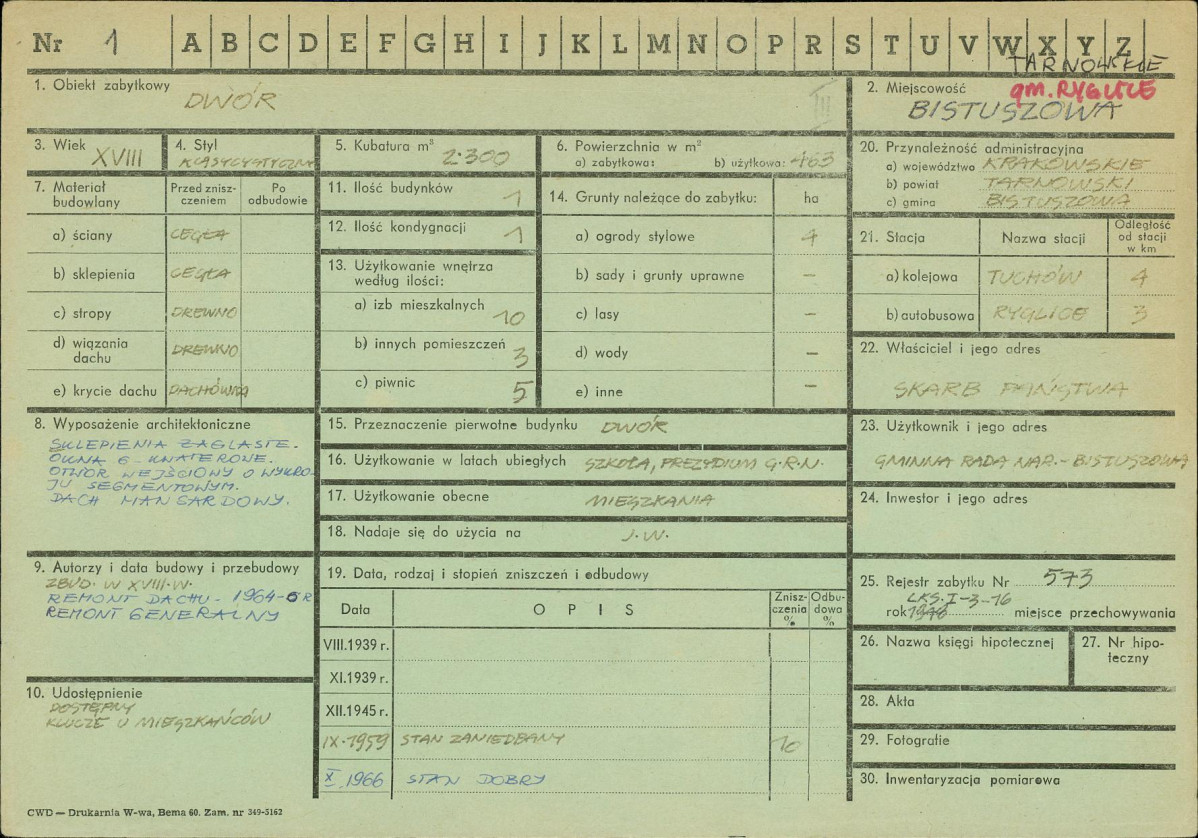 Nr 1 A B C D E F G H I J K L M N O P R S T U V W X Y Z
TARNOWSKIE
1. Obiekt zabytkowy DWÓR III
2. Miejscowość gm. RYGLICE
BISTUSZOWA
3. Wiek XVIII
4. Styl KLASYCYSTYCZNY
5. Kubatura m³ 2.300
6. Powierzchnia w m²
a) zabytkowa: b) użytkowa: 463
7. Materiał budowlany
Przed znisz-
czeniem
Po
odbudowie
a) ściany CEGŁA
b) sklepienia CEGŁA
c) stropy DREWNO
d) wiązania
dachu DREWNO
e) krycie dachu DACHÓWKA
8. Wyposażenie architektoniczne
SKLEPIENIA ZAGLASTE.
OKNA 6-KWATEROWE.
OTWÓR WEJŚCIOWY O WYKRO-
JU SEGMENTOWYM.
DACH MANSARDOWY.
9. Autorzy i data budowy i przebudowy
ZBUD. W XVIII.W.
REMONT DACHU - 1964-5 R
REMONT GENERALNY
10. Udostępnienie
DOSTĘPNY
KLUCZE U MIESZKAŃCÓW
11. Ilość budynków 1
12. Ilość kondygnacji 1
13. Użytkowanie wnętrza
według ilości:
a) izb mieszkalnych 10
b) innych pomieszczeń 3
c) piwnic 5
14. Grunty należące do zabytku: ha
a) ogrody stylowe 4
b) sady i grunty uprawne –
c) lasy –
d) wody –
e) inne –
15. Przeznaczenie pierwotne budynku DWÓR
16. Użytkowanie w latach ubiegłych SZKOŁA, PREZYDIUM G.R.N.
17. Użytkowanie obecne MIESZKANIA
18. Nadaje się do użycia na J.W.
19. Data, rodzaj i stopień zniszczeń i odbudowy
Data O P I S Znisz-
czenia
% Odbu-
dowa
%
VIII.1939 r.
XI.1939 r.
XII.1945 r.
IX.1959 STAN ZANIEDBANY 10
X.1966 STAN DOBRY
20. Przynależność administracyjna
a) województwo KRAKOWSKIE
b) powiat TARNOWSKI
c) gmina BISTUSZOWA
21. Stacja Nazwa stacji Odległość
od stacji
w km
a) kolejowa TUCHÓW 4
b) autobusowa RYGLICE 3
22. Właściciel i jego adres
SKARB PAŃSTWA
23. Użytkownik i jego adres
GMINNA RADA NAR. - BISTUSZOWA
24. Inwestor i jego adres
25. Rejestr zabytku Nr 573
LKS.I-3-16
rok 1948 miejsce przechowywania
26. Nazwa księgi hipotecznej
27. Nr hipo-
teczny
28. Akta
29. Fotografie
30. Inwentaryzacja pomiarowa
CWD — Drukarnia W-wa, Bema 60. Zam. nr 349-5162